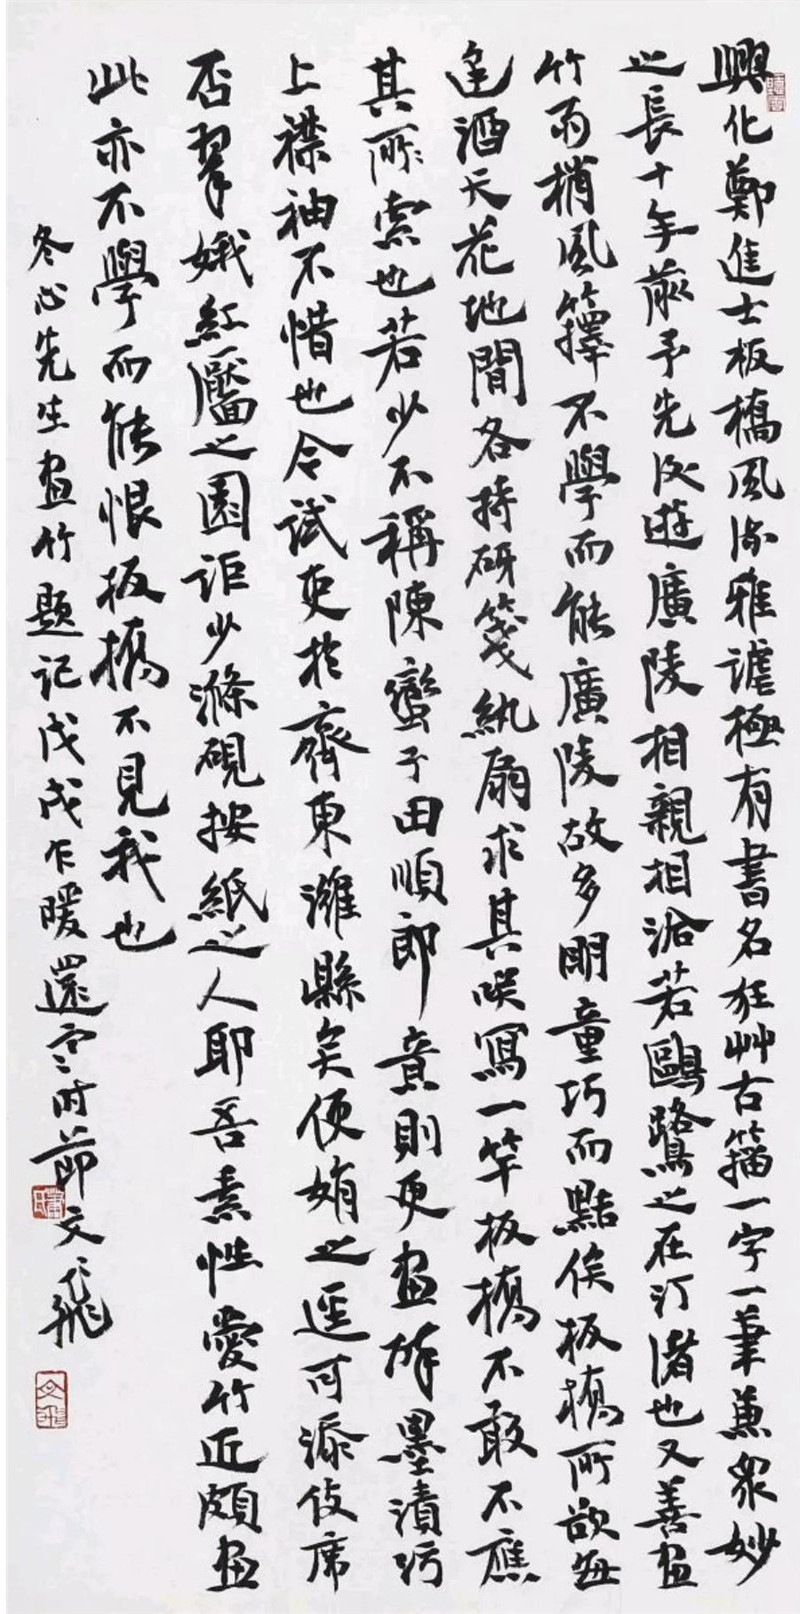 興化鄭進士板橋風流雅謔極有書名狂艸古籀一字一筆兼衆妙
之長十年前予先後遊廣陵相親相洽若鷗鷺之在汀渚也又善畫
竹雨梢風籜不學而能廣陵故多明童巧而黠俟板橋所欲每
逢酒天花地間各持砑箋紈扇求其咲寫一竿板橋不敢不應
其所索也若少不稱陳蠻子田順郎意則更畫醉墨漬污
上襟袖不惜也今試吏於齊東濰縣矣便娟之逕可添伎席
否翠娥紅靨之園詎少滌硯按紙之人耶吾素性愛竹近頗畫
此亦不學而能恨板橋不見我也
冬心先生畫竹題記戊戌乍暖還寒時節文飛
文飛